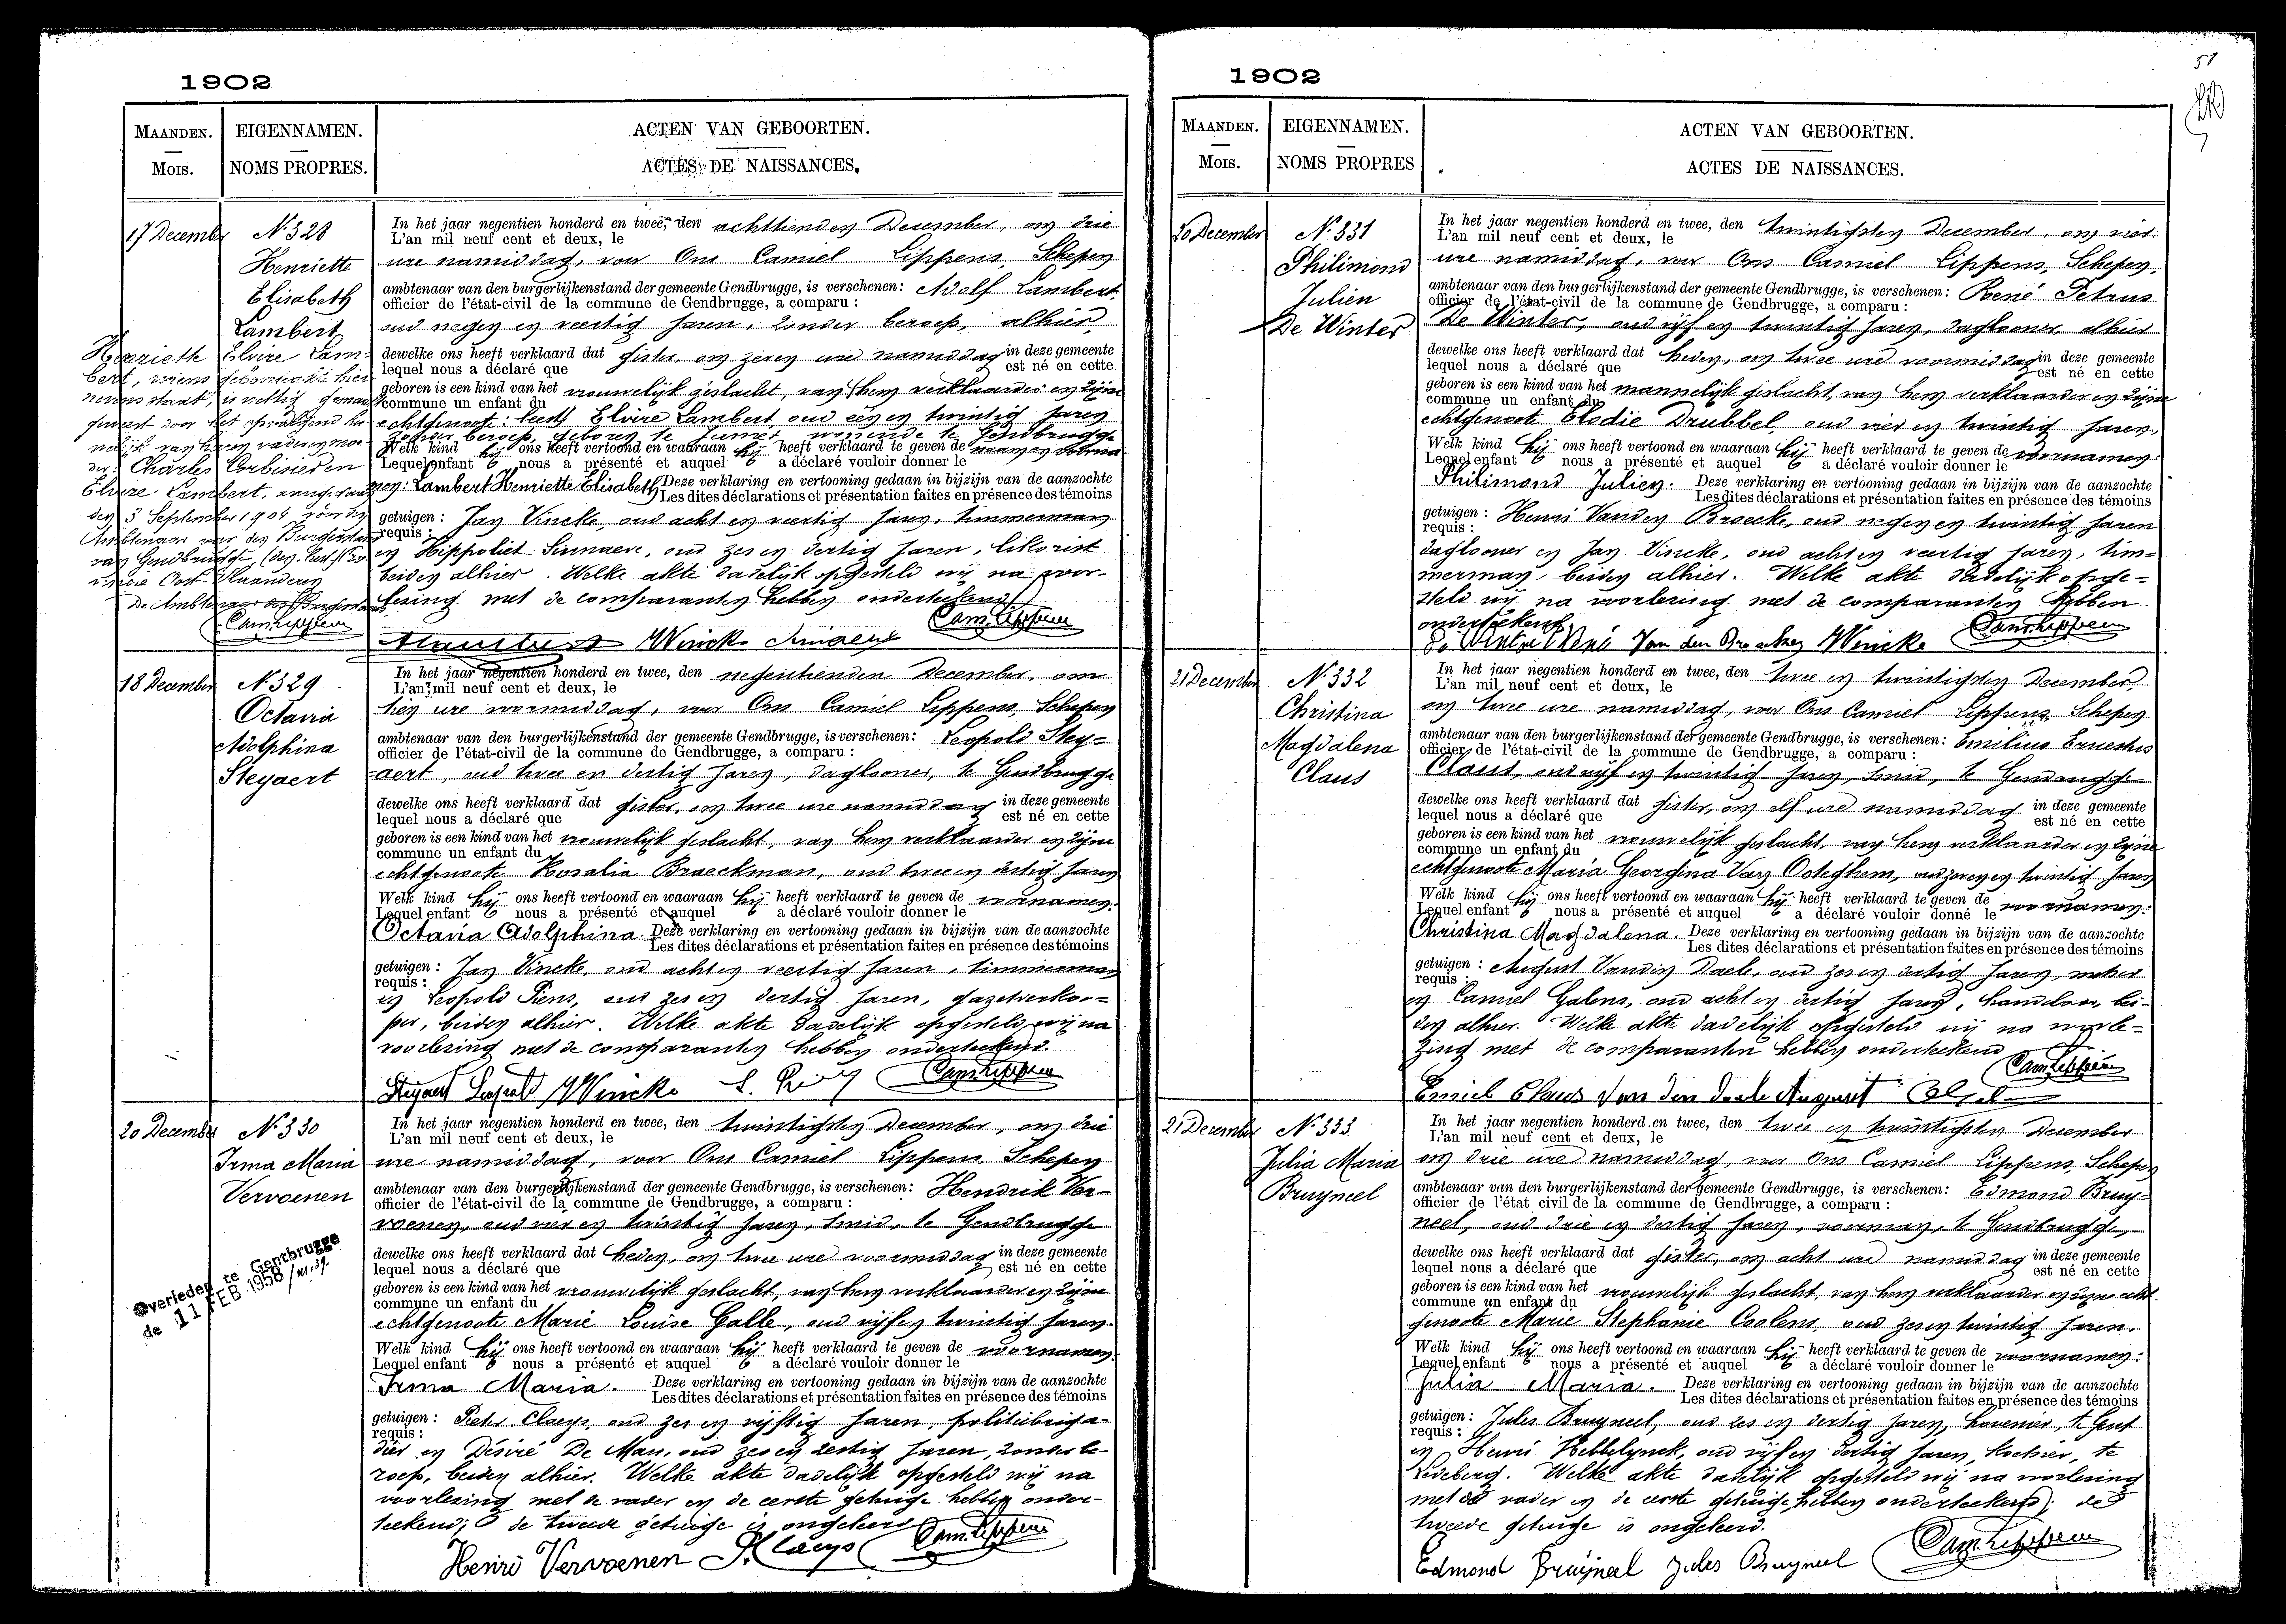 1902
MAANDEN.
Mois.
EIGENNAMEN.
NOMS PROPRES.
ACTEN VAN GEBOORTEN.
ACTES DE NAISSANCES.
17 December
N. 328
Henriette
Elisabeth
Lambert
In het jaar negentien honderd en twee, den achttienden December, om drie
L'an mil neuf cent et deux, le
ure namiddag, voor Ons Camiel Lippens, Schepen
ambtenaar van den burgerlijkenstand der gemeente Gendbrugge, is verschenen: Adolf Lambert,
officier de l'état-civil de la commune de Gendbrugge, a comparu :
oud negen en veertig jaren, zonder beroep, alhier,
dewelke ons heeft verklaard dat gister, om zeven ure namiddag in deze gemeente
lequel nous a déclaré que est né en cette
geboren is een kind van het vrouwelijk geslacht, van hem verklaarder en zijne
commune un enfant du
Elvire Lambert, oud een en twintig jaren
zonder beroep, geboren te Jumet, wonende te Gendbrugge
Welk kind hij ons heeft vertoond en waaraan hij heeft verklaard te geven de
Lequel enfant nous a présenté et auquel a déclaré vouloir donner le
Lambert Henriette Elisabeth. Deze verklaring en vertooning gedaan in bijzijn van de aanzochte
Les dites déclarations et présentation faites en présence des témoins
getuigen : Jan Vincke, oud acht en veertig jaren, timmerman
requis :
en Hippoliet Sinnaeve, oud zes en dertig jaren, likorist
beiden alhier. Welke akte dadelijk opgesteld wij na voor-
lezing met de comparanten hebben onderteekend.
Henrieth Elvire Lam-
bert, wiens geboorteakte hier
nevens staat, is wettig
door het
vader en moe-
der: Charles Corbisier en
Elvire Lambert, aangegaan
den 3 September 1904 voor den
Ambtenaar van den Burgerstand
van Gendbrugge
vincie Oost-Vlaanderen
De Ambtenaar van den Burgerstand
Cam. Lippens
Vincke Sinnaeve Cam. Lippens
18 December
N. 329
Octavia
Adolphina
Steyaert
In het jaar negentien honderd en twee, den negentienden December, om
L'an mil neuf cent et deux, le
tien ure voormiddag, voor Ons Camiel Lippens, Schepen
ambtenaar van den burgerlijkenstand der gemeente Gendbrugge, is verschenen: Leopold Stey-
officier de l'état-civil de la commune de Gendbrugge, a comparu :
aert, oud twee en dertig jaren, daglooner, te Gendbrugge
dewelke ons heeft verklaard dat gister, om twee ure namiddag in deze gemeente
lequel nous a déclaré que est né en cette
geboren is een kind van het vrouwelijk geslacht, van hem verklaarder en zijne
commune un enfant du
echtgenoote Rosalia Braeckman, oud twee en dertig jaren
Welk kind hij ons heeft vertoond en waaraan hij heeft verklaard te geven de voornamen:
Lequel enfant nous a présenté et auquel a déclaré vouloir donner le
Octavia Adolphina. Deze verklaring en vertooning gedaan in bijzijn van de aanzochte
Les dites déclarations et présentation faites en présence des témoins
getuigen : Jan Vincke, oud acht en veertig jaren, timmerman
requis :
en Leopold Piens, oud zes en dertig jaren, gazetverkoo-
per, beiden alhier. Welke akte dadelijk opgesteld wij na
voorlezing met de comparanten hebben onderteekend.
Steyaert Leopold Vincke L. Piens Cam. Lippens
20 December
N. 330
Irma Maria
Vervoenen
Overleden te Gentbrugge
de 11 FEB. 1958
In het jaar negentien honderd en twee, den twintigsten December, om drie
L'an mil neuf cent et deux, le
ure namiddag, voor Ons Camiel Lippens Schepen
ambtenaar van den burgerlijkenstand der gemeente Gendbrugge, is verschenen: Hendrik Ver-
officier de l'état-civil de la commune de Gendbrugge, a comparu :
voenen, oud vier en twintig jaren, smid, te Gendbrugge
dewelke ons heeft verklaard dat heden, om twee ure voormiddag in deze gemeente
lequel nous a déclaré que est né en cette
geboren is een kind van het vrouwelijk geslacht, van hem verklaarder en zijne
commune un enfant du
echtgenoote Marie Louise Galle, oud vijf en twintig jaren.
Welk kind hij ons heeft vertoond en waaraan hij heeft verklaard te geven de voornamen:
Lequel enfant nous a présenté et auquel a déclaré vouloir donner le
Irma Maria. Deze verklaring en vertooning gedaan in bijzijn van de aanzochte
Les dites déclarations et présentation faites en présence des témoins
getuigen : Pieter Claeys, oud zes en vijftig jaren, politiebriga-
requis :
dier en Désiré De Man, oud zes en zestig jaren, zonder be-
roep, beiden alhier. Welke akte dadelijk opgesteld wij na
voorlezing met de vader en de eerste getuige hebben onder-
teekend; de tweede getuige is ongeleerd
Henri Vervoenen P. Claeys Cam. Lippens
51
1902
MAANDEN.
Mois.
EIGENNAMEN.
NOMS PROPRES
ACTEN VAN GEBOORTEN.
ACTES DE NAISSANCES.
20 December
N. 331
Philimond
Julien
De Winter
In het jaar negentien honderd en twee, den twintigsten December, om vier
L'an mil neuf cent et deux, le
ure namiddag, voor Ons Camiel Lippens, Schepen,
ambtenaar van den burgerlijkenstand der gemeente Gendbrugge, is verschenen: René Petrus
officier de l'état-civil de la commune de Gendbrugge, a comparu :
De Winter, oud vijf en twintig jaren, daglooner alhier
dewelke ons heeft verklaard dat heden, om twee ure voormiddag in deze gemeente
lequel nous a déclaré que est né en cette
geboren is een kind van het mannelijk geslacht, van hem verklaarder en zijne
commune un enfant du
echtgenoote Elodie Drubbel, oud vier en twintig jaren,
Welk kind hij ons heeft vertoond en waaraan hij heeft verklaard te geven de voornamen:
Lequel enfant nous a présenté et auquel a déclaré vouloir donner le
Philimond Julien. Deze verklaring en vertooning gedaan in bijzijn van de aanzochte
Les dites déclarations et présentation faites en présence des témoins
getuigen : Henri Vanden Broecke, oud negen en twintig jaren
requis :
daglooner en Jan Vincke, oud acht en veertig jaren, tim-
merman, beiden alhier. Welke akte dadelijk opge-
steld wij na voorlezing met de comparanten hebben
onderteekend
De Winter René Van den Broecke Vincke Cam. Lippens
21 December
N. 332
Christina
Magdalena
Claus
In het jaar negentien honderd en twee, den twee en twintigsten December,
L'an mil neuf cent et deux, le
om twee ure namiddag, voor Ons Camiel Lippens, Schepen
ambtenaar van den burgerlijkenstand der gemeente Gendbrugge, is verschenen: Emilius Ernestus
officier de l'état-civil de la commune de Gendbrugge, a comparu :
Claus, oud vijf en twintig jaren, smid, te Gendbrugge
dewelke ons heeft verklaard dat gister, om elf ure namiddag in deze gemeente
lequel nous a déclaré que est né en cette
geboren is een kind van het vrouwelijk geslacht, van hem verklaarder en zijne
commune un enfant du
echtgenoote Maria Georgina Van Ooteghem, oud zeven en twintig jaren
Welk kind hij ons heeft vertoond en waaraan hij heeft verklaard te geven de voornamen:
Lequel enfant nous a présenté et auquel a déclaré vouloir donné le
Christina Magdalena. Deze verklaring en vertooning gedaan in bijzijn van de aanzochte
Les dites déclarations et présentation faites en présence des témoins
getuigen : August Vanden Daele, oud zes en dertig jaren,
requis :
en Camiel Galens, oud acht en dertig jaren, handelaar, bei-
den alhier. Welke akte dadelijk opgesteld wij na voorle-
zing met de comparanten hebben onderteekend
Cam. Lippens
Emiel Claus Van den Daele August
21 December
N. 333
Julia Maria
Bruyneel
In het jaar negentien honderd en twee, den twee en twintigsten December
L'an mil neuf cent et deux, le
om drie ure namiddag, voor Ons Camiel Lippens, Schepen
ambtenaar van den burgerlijkenstand der gemeente Gendbrugge, is verschenen: Edmond Bruy-
officier de l'état civil de la commune de Gendbrugge, a comparu :
neel, oud drie en dertig jaren, te Gendbrugge,
dewelke ons heeft verklaard dat gister, om acht ure namiddag in deze gemeente
lequel nous a déclaré que est né en cette
geboren is een kind van het vrouwelijk geslacht, van hem verklaarder en zijne echt-
commune un enfant du
genoote Marie Stephanie Coolens, oud zes en twintig jaren.
Welk kind hij ons heeft vertoond en waaraan hij heeft verklaard te geven de voornamen:
Lequel enfant nous a présenté et auquel a déclaré vouloir donner le
Julia Maria. Deze verklaring en vertooning gedaan in bijzijn van de aanzochte
Les dites déclarations et présentation faites en présence des témoins
getuigen : Jules Bruyneel, oud zes en dertig jaren, hovenier, te Gent
requis :
en Henri Hebbelynck, oud vijf en dertig jaren, koetsier, te
Ledeberg. Welke akte dadelijk opgesteld wij na voorlezing
met de vader en de eerste getuige hebben onderteekend; de
tweede getuige is ongeleerd.
Edmond Bruijneel Jules Bruyneel Cam. Lippens